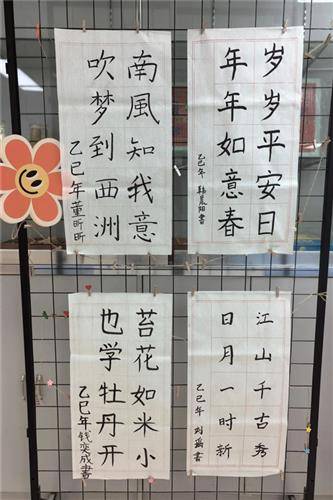 南風知我意
吹梦到西洲
乙巳年董昕昕
岁岁平安日
年年如意春
乙巳年 韩晨阳書
苔花如米小
也学牡丹开
乙巳年钱奕成書
江山千古秀
日月一时新
乙巳年 刘 書